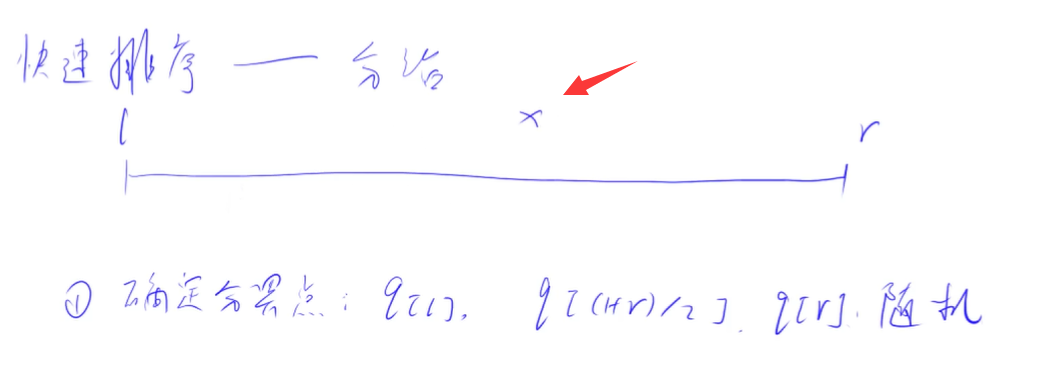 快速排序 —— 分治
l x r
① 确定分界点: q[l], q[(l+r)/2], q[r], 随机